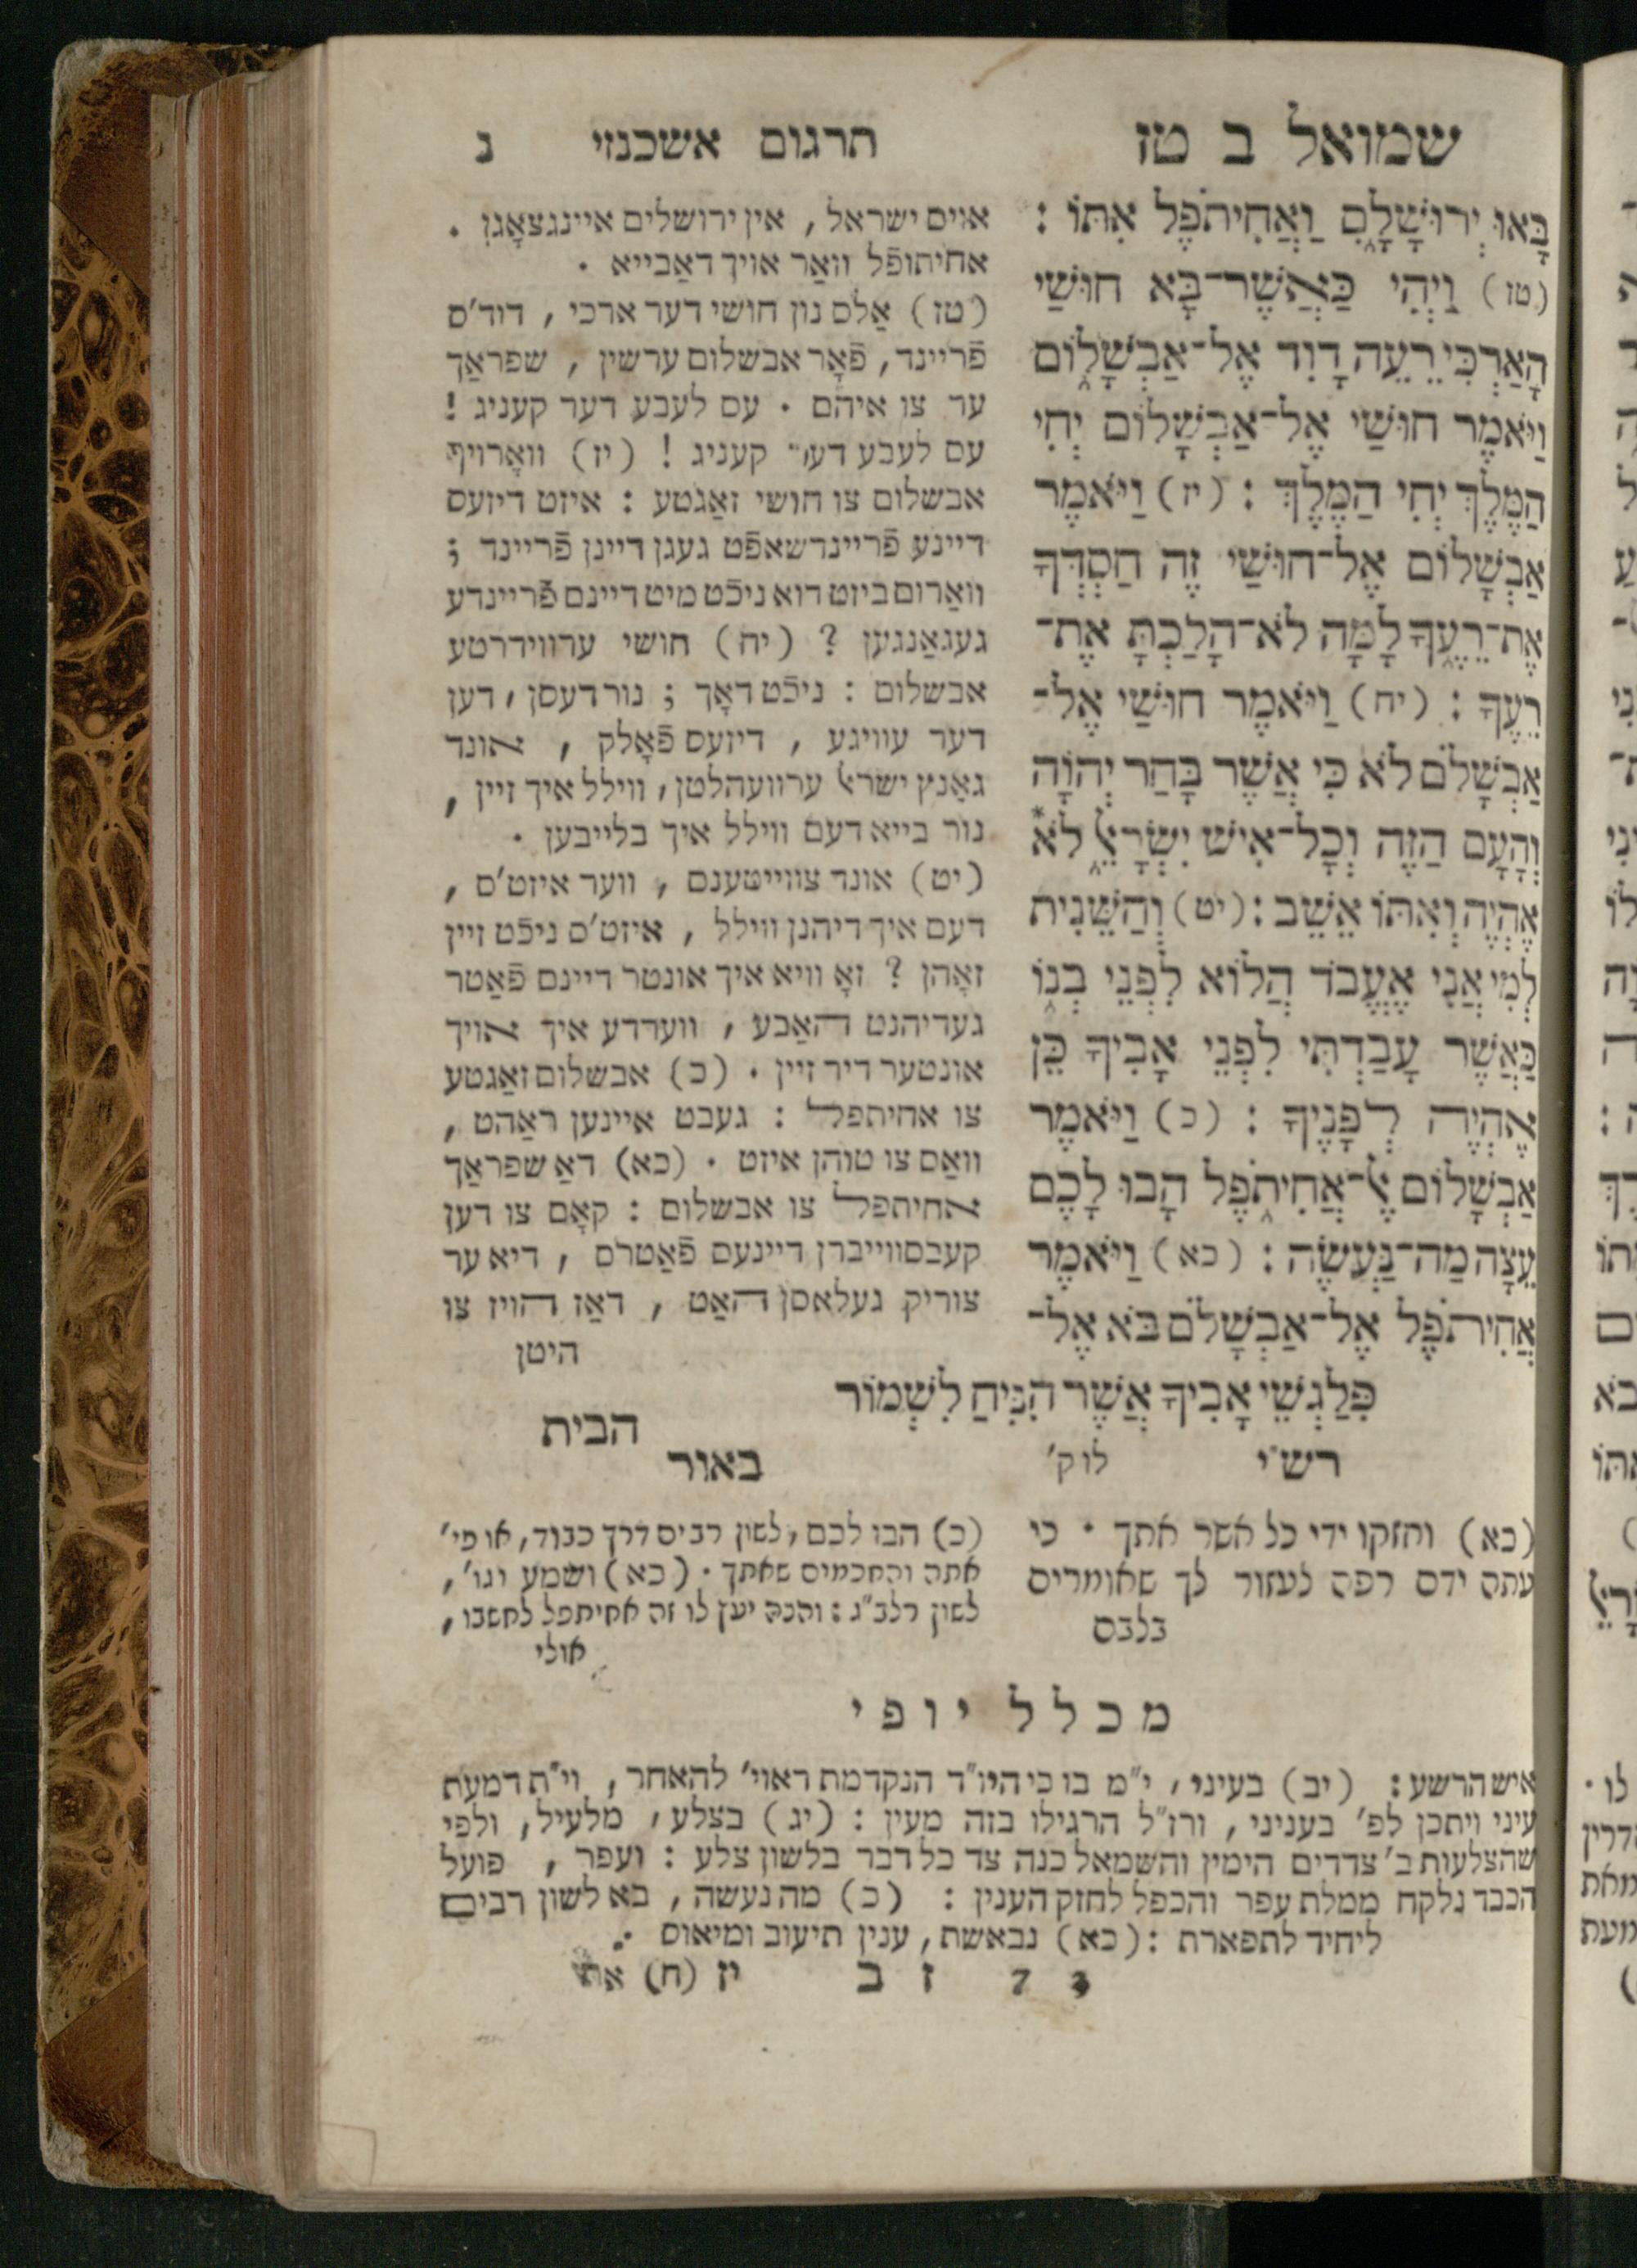 שמואל ב טז
תרגום אשכנזי נ
בָּאוּ יְרוּשָׁלָ֑ם וַאֲחִיתֹפֶל אִתּוֹ :
(טז) וַיְהִי כַּאֲשֶׁר־בָּא חוּשַׁי
הָאַרְכִּי רֵעֵה דָוִד אֶל־אַבְשָׁל֑וֹם
וַיֹּאמֶר חוּשַׁי אֶל־אַבְשָׁלוֹם יְחִי
הַמֶּלֶךְ יְחִי הַמֶּלֶךְ : (יז) וַיֹּאמֶר
אַבְשָׁלוֹם אֶל־חוּשַׁי זֶה חַסְדְּךָ
אֶת־רֵעֶ֑ךָ לָמָּה לֹא־הָלַכְתָּ אֶת־
רֵעֶךָ : (יח) וַיֹּאמֶר חוּשַׁי אֶל־
אַבְשָׁלֹם לֹא כִּי אֲשֶׁר בָּחַר יְהוָֹה
וְהָעָם הַזֶּה וְכָל־אִישׁ יִשְׂרָאֵ֑ל *לֹא
אֶהְיֶה וְאִתּוֹ אֵשֵׁב : (יט) וְהַשֵּׁנִית
לְמִי אֲנִי אֶעֱבֹד הֲלוֹא לִפְנֵי בְנ֑וֹ
כַּאֲשֶׁר עָבַדְתִּי לִפְנֵי אָבִיךָ כֵּן
אֶהְיֶה לְפָנֶיךָ : (כ) וַיֹּאמֶר
אַבְשָׁלוֹם אֶל־אֲחִיתֹ֑פֶל הָבוּ לָכֶם
עֵצָה מַה־נַּעֲשֶׂה : (כא) וַיֹּאמֶר
אֲחִיתֹפֶל אֶל־אַבְשָׁלֹם בֹּא אֶל־
פִּלַגְשֵׁי אָבִיךָ אֲשֶׁר הִנִּיחַ לִשְׁמוֹר
הבית
אויס ישראל , אין ירושלים איינגצאָגן .
אחיתופֿל וואַר אויך דאַבייא .
(טז) אַלס נון חושי דער ארכי , דוד'ס
פֿריינד , פֿאָר אבשלום ערשין , שפראַך
ער צו איהם . עס לעבע דער קעניג !
עס לעבע דער קעניג ! (יז) וואָרויף
אבשלום צו חושי זאַגטע : איזט דיזעס
דיינע פֿריינדשאפֿט געגן דיינן פֿריינד ;
וואַרום ביזט דוא ניכֿט מיט דיינם פֿריינדע
געגאַנגען ? (יח) חושי ערווידרטע
אבשלום : ניכֿט דאָך ; נור דעסן , דען
דער עוויגע , דיזעס פֿאָלק , אונד
גאַנץ ישראל ערוועהלטן , ווילל איך זיין ,
נור בייא דעם ווילל איך בלייבען .
(יט) אונד צווייטענס , ווער איזט'ס ,
דעם איך דיהנן ווילל , איזט'ס ניכֿט זיין
זאָהן ? זאָ וויא איך אונטר דיינם פֿאַטר
געדיהנט האַבע , ווערדע איך אויך
אונטער דיר זיין . (כ) אבשלום זאַגטע
צו אחיתפל : געבט איינען ראַהט ,
וואַס צו טוהן איזט . (כא) דאַ שפראַך
אחיתפל צו אבשלום : קאָם צו דען
קעבסווייברן דיינעס פֿאַטרס , דיא ער
צוריק געלאסן האַט , דאַז הויז צו
היטן
רש״י
לו ק'
(כא) וחזקו ידי כל אשר אתך . כי
עתה ידם רפה לעזור לך שאומרים
בלבם
באור
(כ) הבו לכם , לשון רבים דרך כבוד , או פי'
אתה והחכמים שאתך . (כא) ושמע וגו' ,
לשון רלב״ג : והנה יען לו זה אחיתפל לחשבו ,
אולי
מכלל יופי
איש הרשע : (יב) בעיני , י״מ בו כי היו״ד הנקדמת ראוי' להאחר , וי״ת דמעת
עיני ויתכן לפ' בעניני , ורז״ל הרגילו בזה מעין : (יג) בצלע , מלעיל , ולפי
שהצלעות ב' צדדים הימין והשמאל כנה צד כל דבר בלשון צלע : ועפר , פועל
הכבד נלקח ממלת עפר והכפל לחזק הענין : (כ) מה נעשה , בא לשון רבים
ליחיד לתפארת : (כא) נבאשת , ענין תיעוב ומיאוס .
7 ז ב יז (ח) את